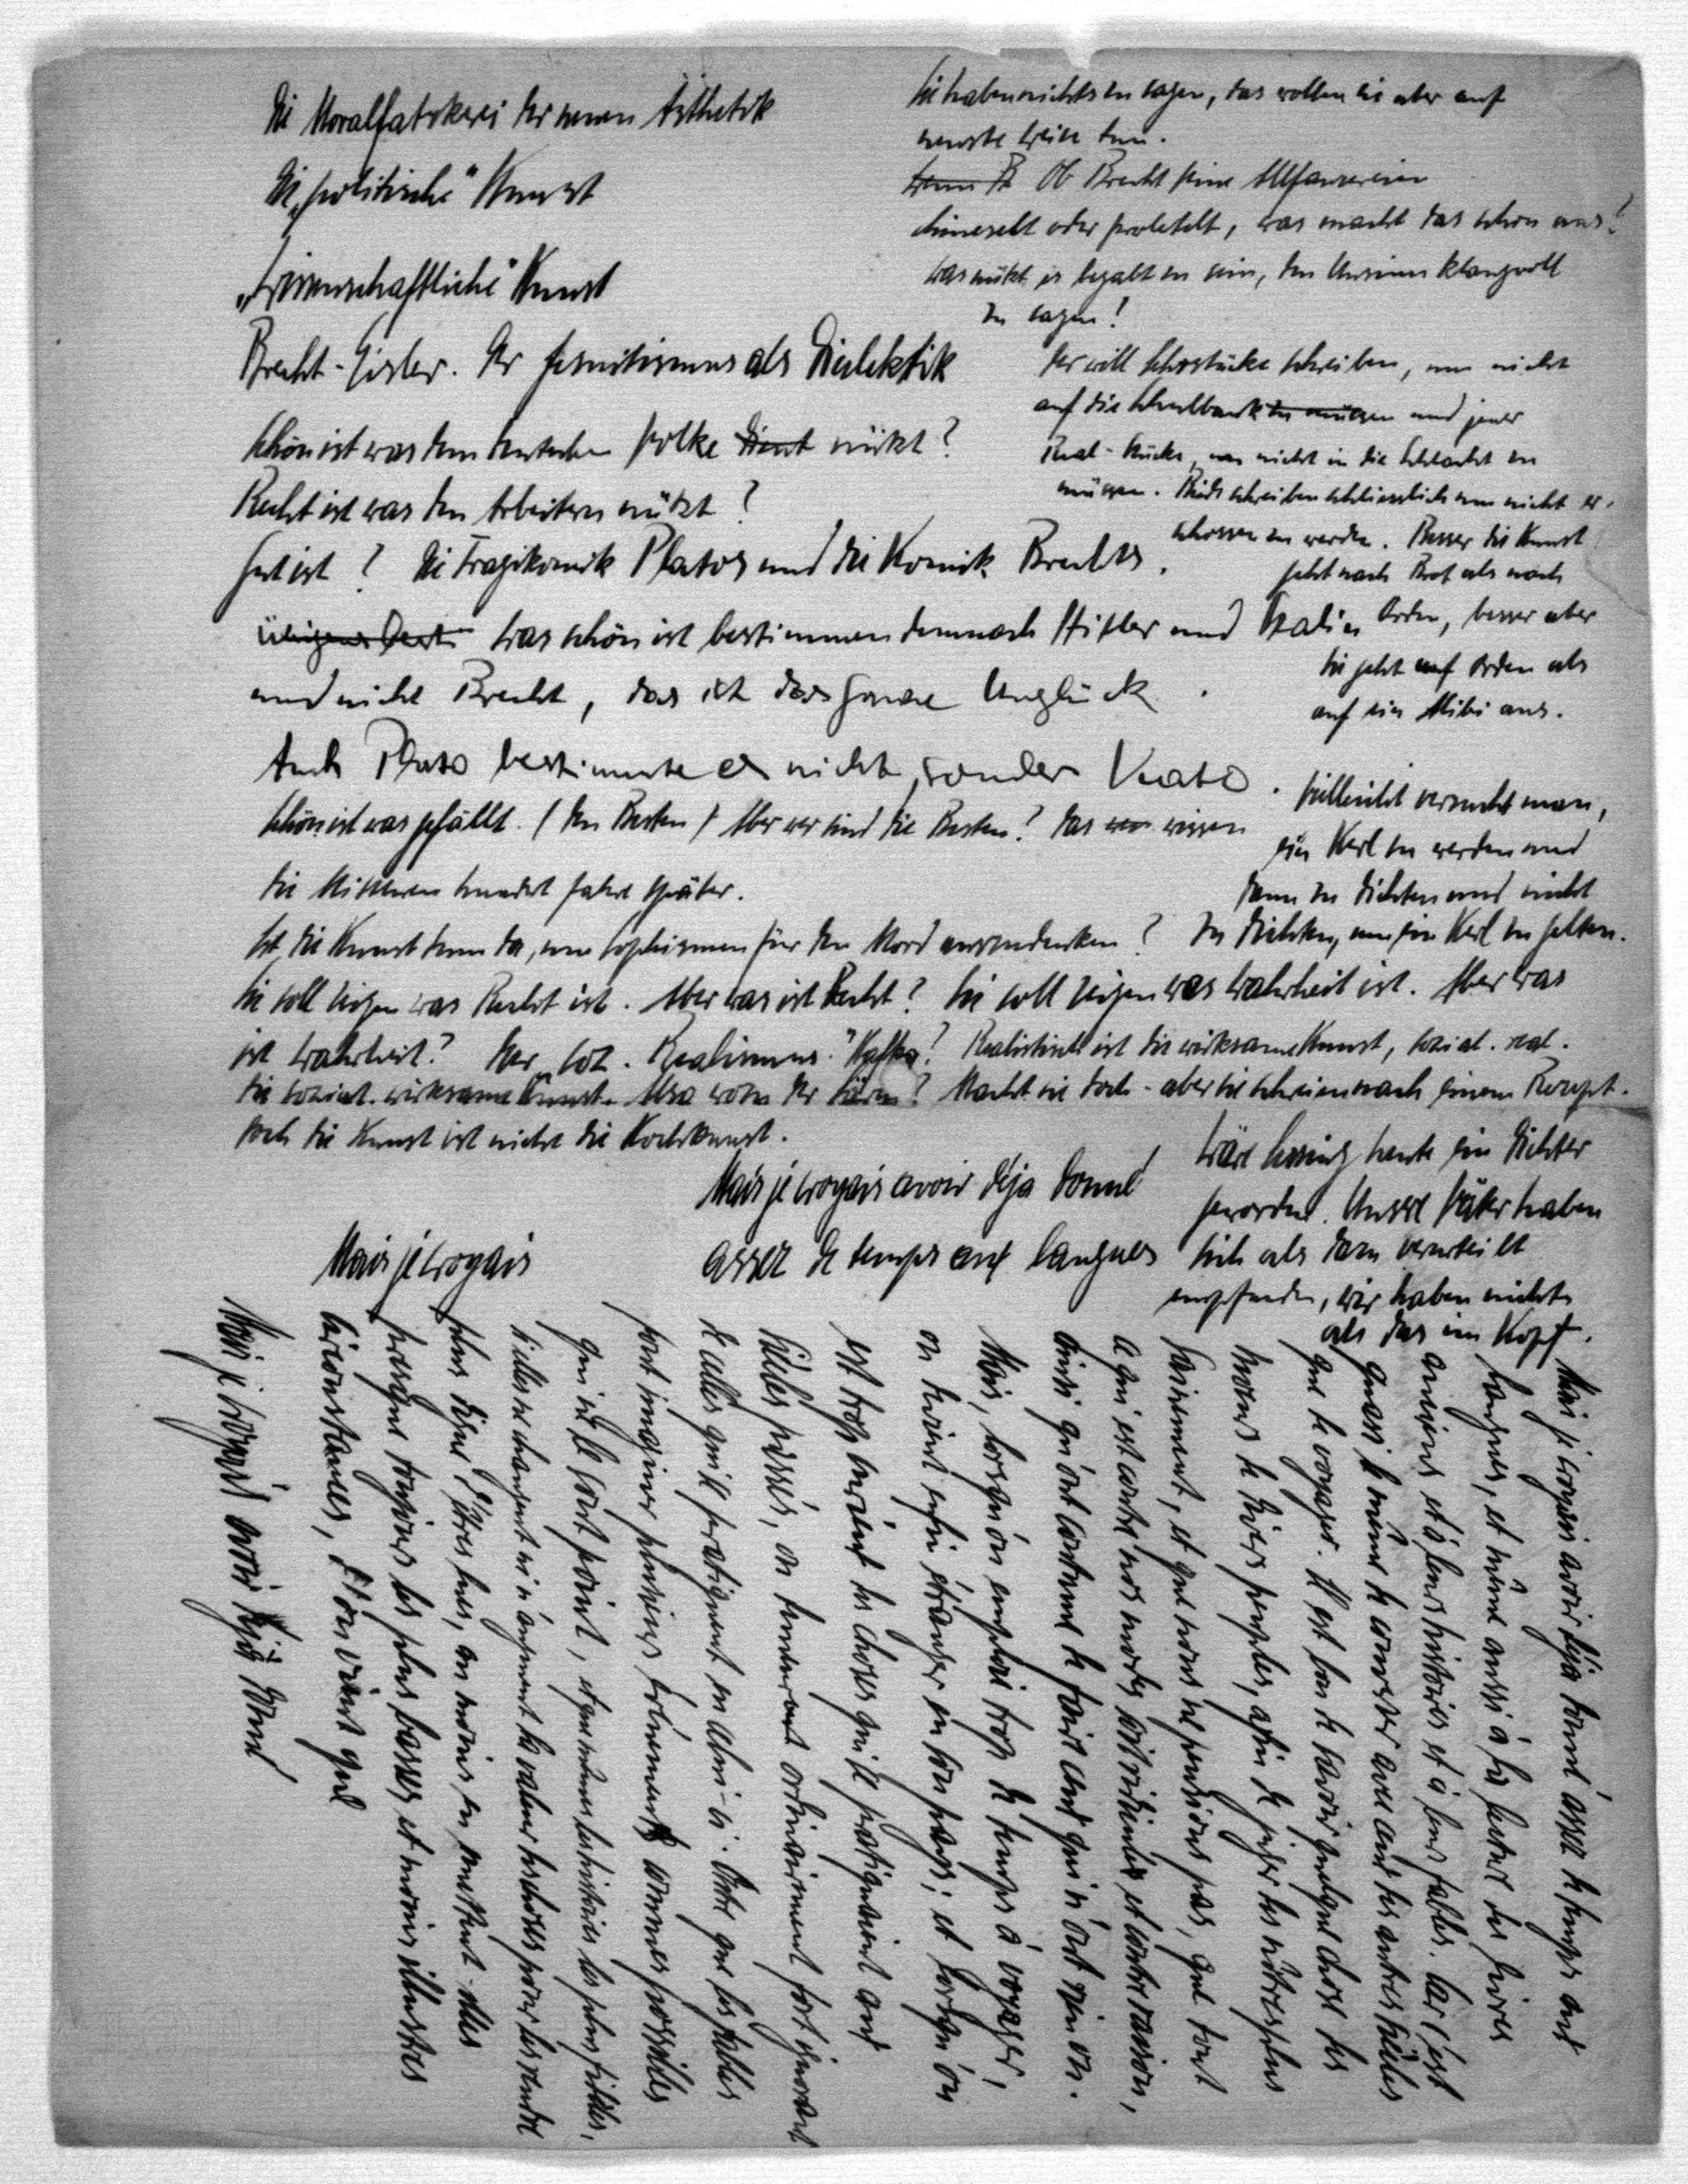 Die Moralfatzkerei der neuen Ästhetik
Die „politische" Kunst
„Wissenschaftliche" Kunst
Brecht-Eisler. Der Jesuitismus als Dialektik
Schön ist was dem deutschen Volke dient nützt?
Recht ist was den Arbeitern nützt?
Gut ist? Die Tragikomik Platos und die Komik Brechts.
Was schön ist bestimmen demnach Hitler und Stalin
und nicht Brecht, das ist das ganze Unglück.
Auch Plato bestimmte es nicht, sonder
Schön ist was gefällt. (Den Besten) Aber wer sind die Besten? Das wissen
die Mittleren hundert Jahre später.
Ist die Kunst denn da, um Sophismen für den Mord auszudenken?
Sie soll zeigen was Recht ist. Aber was ist Recht? Sie soll zeigen was Wahrheit ist. Aber was
ist Wahrheit? Der „soz. Realismus." Kafka? Realistisch ist die wirksame Kunst, sozial. real.
die sozial. wirksame Kunst. Also wozu der Lärm? Macht sie doch - aber sie schreien nach einem Rezept.
Doch die Kunst ist nicht die Kochkunst.
Sie haben nichts zu sagen, das wollen sie aber auf
neuste Weise tun.
Wenn B Ob Brecht seine Alfanzereien
chineselt oder proletelt, was macht das schon aus?
Was nützt es begabt zu sein, den Unsinn klangvoll
zu sagen!
Der will Lehrstücke schreiben, um nicht
auf die Schulbank zu müssen und jener
Real-Stücke, um nicht in die Schlacht zu
müssen. Beide schreiben schliesslich um nicht er-
schossen zu werden. Besser die Kunst
geht nach Brot als nach
Orden, besser aber
sie geht auf Orden als
auf ein Alibi aus.
Vielleicht versucht man,
ein Kerl zu werden und
dann zu dichten und nicht
zu dichten, um ein Kerl zu gelten.
Wäre Lessing heute ein Dichter
geworden. Unsere Väter haben
sich als dazu verurteilt
empfunden, wir haben nichts
als das im Kopf.
Mais je croyais avoir déja donné
assez de temps aux langues
Mais je croyais
Mais je croyais avoir déja donné assez de temps aux
langues, et même aussi à la lecture des livres
anciens et à leurs histoires et à leurs fables. Car c'est
quasi le même de converser avec ceux des autres siècles
que de voyager. Il est bon de savoir quelque chose des
moeurs de divers peuples, afin de juger des nôtres plus
sainement, et que nous ne pensions pas, que tout
ce qui est contre nos modes soit ridicule, et contre raison,
ainsi qu'ont coutume de faire ceux qui n'ont rien vu.
Mais, lorsqu'on emploie trop de temps à voyager,
on devient enfin étranger en son pays; et lorsqu'on
est trop curieux des choses qui se pratiquaient aux
siècles passés, on demeure ordinairement fort ignorant
de celles qui se pratiquent en celui-ci. Outre que les fables
font imaginer plusieurs événements comme possibles
qui ne le sont point, et que même les histoires les plus fidèles,
si elles ne changent ni n'augmentent la valeur des choses pour les rendre
plus dignes d'être lues, au moins en omettent-elles
presque toujours les plus basses et moins illustres
circonstances, d'où vient que
Mais je croyais avoir déjà donné